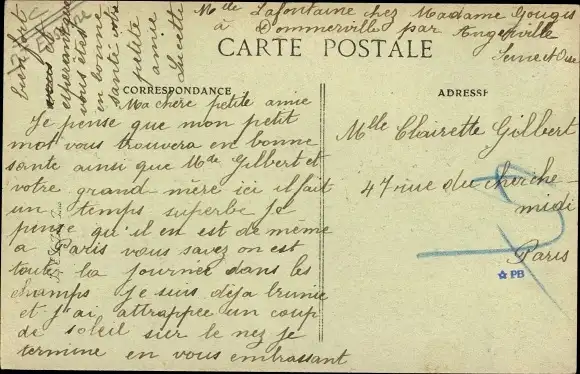 Mlle Lafontaine chez Madame Gougis
à Dommerville par Angerville
Seine et Oise
CARTE POSTALE
CORRESPONDANCE
ADRESSE
Ma chère petite amie
Je pense que mon petit
mot vous trouvera en bonne
sante ainsi que Mde Gilbert et
votre grand mère ici il fait
un temps superbe je
pense qu'il en est de même
a Paris vous savez on est
toute la journée dans les
champs je suis déja brunie
et j'ai attrappée un coup
de soleil sur le nez je
termine en vous embrassant
bien fort
esperant que
vous êtes
en bonne
santé votre
petite
amie
Lucette
Mlle Clairette Gilbert
47 rue du cherche
midi
Paris
PB